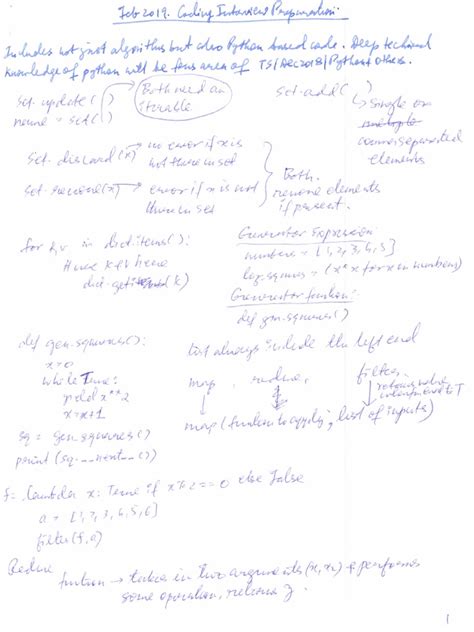 Feb 2019. Coding Interview Preparation.
Includes not just algorithms but also Python based code. Deep technical
knowledge of python will be focus area of TS/Dec2018/Python others.
set.update( )
name = set( )
Both need an
iterable
set.add( )
Single or
multiple
comma separated
elements
set.discard(x) → no error if x is
not there in set
set.remove(x) → error if x is not
there in set
Both
remove elements
if present.
for k,v in dict.items():
dict.get (k)
Generator Expression:
numbers = [1,2,3,4,5]
squares = (x*x for x in numbers)
Generator function:
def gen.squares()
def gen.squares():
x=0
while True:
yield x**2
x=x+1
sq = gen.squares()
print(sq.__next__())
always include the left end
map, reduce, filter
map (function to apply, list of inputs)
f = lambda x: True if x%2==0 else False
a = [1,2,3,4,5,6]
filter(f,a)
Reduce
function → takes in two arguments (x1, x2) & performs
some operation, returns z.
1